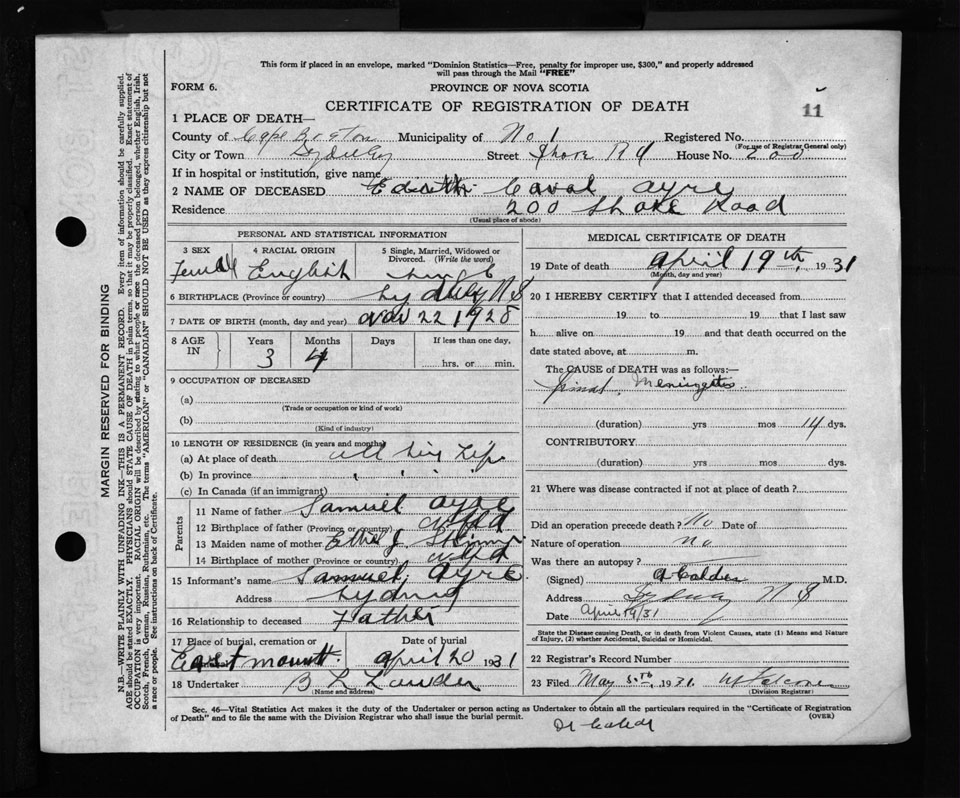 This form if placed in an envelope, marked "Dominion Statistics—Free, penalty for improper use, $300," and properly addressed
will pass through the Mail "FREE"
FORM 6.
PROVINCE OF NOVA SCOTIA
CERTIFICATE OF REGISTRATION OF DEATH
11
1 PLACE OF DEATH—
County of Cape Breton Municipality of No 1 Registered No.
(For use of Registrar General only)
City or Town Sydney Street Shore Rd House No. 200
If in hospital or institution, give name
2 NAME OF DECEASED Edith Caval Ayre
Residence 200 Shore Road
(Usual place of abode)
PERSONAL AND STATISTICAL INFORMATION
3 SEX
4 RACIAL ORIGIN
5 Single, Married, Widowed or
Divorced. (Write the word)
English Single
6 BIRTHPLACE (Province or country) Sydney NS
7 DATE OF BIRTH (month, day and year) Nov 22 1928
8 AGE
IN
Years
Months
Days
If less than one day,
3 4
hrs. or min.
9 OCCUPATION OF DECEASED
(a)
(Trade or occupation or kind of work)
(b)
(Kind of industry)
10 LENGTH OF RESIDENCE (in years and months)
(a) At place of death all Life
(b) In province
(c) In Canada (if an immigrant)
Parents
11 Name of father Samuel Ayre
12 Birthplace of father (Province or country) Nfld
13 Maiden name of mother Ethel J
14 Birthplace of mother (Province or country) Nfld
15 Informant's name Samuel Ayre
Address Sydney
16 Relationship to deceased Father
17 Place of burial, cremation or
Date of burial
Eastmount. April 20 1931
18 Undertaker B L Lauder
(Name and address)
MEDICAL CERTIFICATE OF DEATH
19 Date of death April 19th, 1931
(Month, day and year)
20 I HEREBY CERTIFY that I attended deceased from
19 to 19 that I last saw
h alive on 19 and that death occurred on the
date stated above, at m.
The CAUSE OF DEATH was as follows:—
Meningitis
(duration) yrs mos 14 dys.
CONTRIBUTORY
(duration) yrs mos dys.
21 Where was disease contracted if not at place of death?
Did an operation precede death? No Date of
Nature of operation no
Was there an autopsy?
(Signed) A Calder M.D.
Address Sydney N S
Date April 19/31
State the Disease causing Death, or in death from Violent Causes, state (1) Means and Nature
of Injury, (2) whether Accidental, Suicidal or Homicidal.
22 Registrar's Record Number
23 Filed May 5th, 1931.
(Division Registrar)
Sec. 46—Vital Statistics Act makes it the duty of the Undertaker or person acting as Undertaker to obtain all the particulars required in the "Certificate of Registration
of Death" and to file the same with the Division Registrar who shall issue the burial permit.
(OVER)
MARGIN RESERVED FOR BINDING
N.B.—WRITE PLAINLY WITH UNFADING INK—THIS IS A PERMANENT RECORD. Every item of information should be carefully supplied.
AGE should be stated EXACTLY. PHYSICIANS should STATE CAUSE OF DEATH in plain terms, so that it may be properly classified. Exact statement of
OCCUPATION is very important. RACIAL ORIGIN will be described by stating to what people or race the deceased person belonged, whether English, Irish,
Scotch, French, German, Russian, Ruthenian, etc. The terms "AMERICAN" or "CANADIAN" SHOULD NOT BE USED as they express citizenship but not
a race or people. See instructions on back of Certificate.